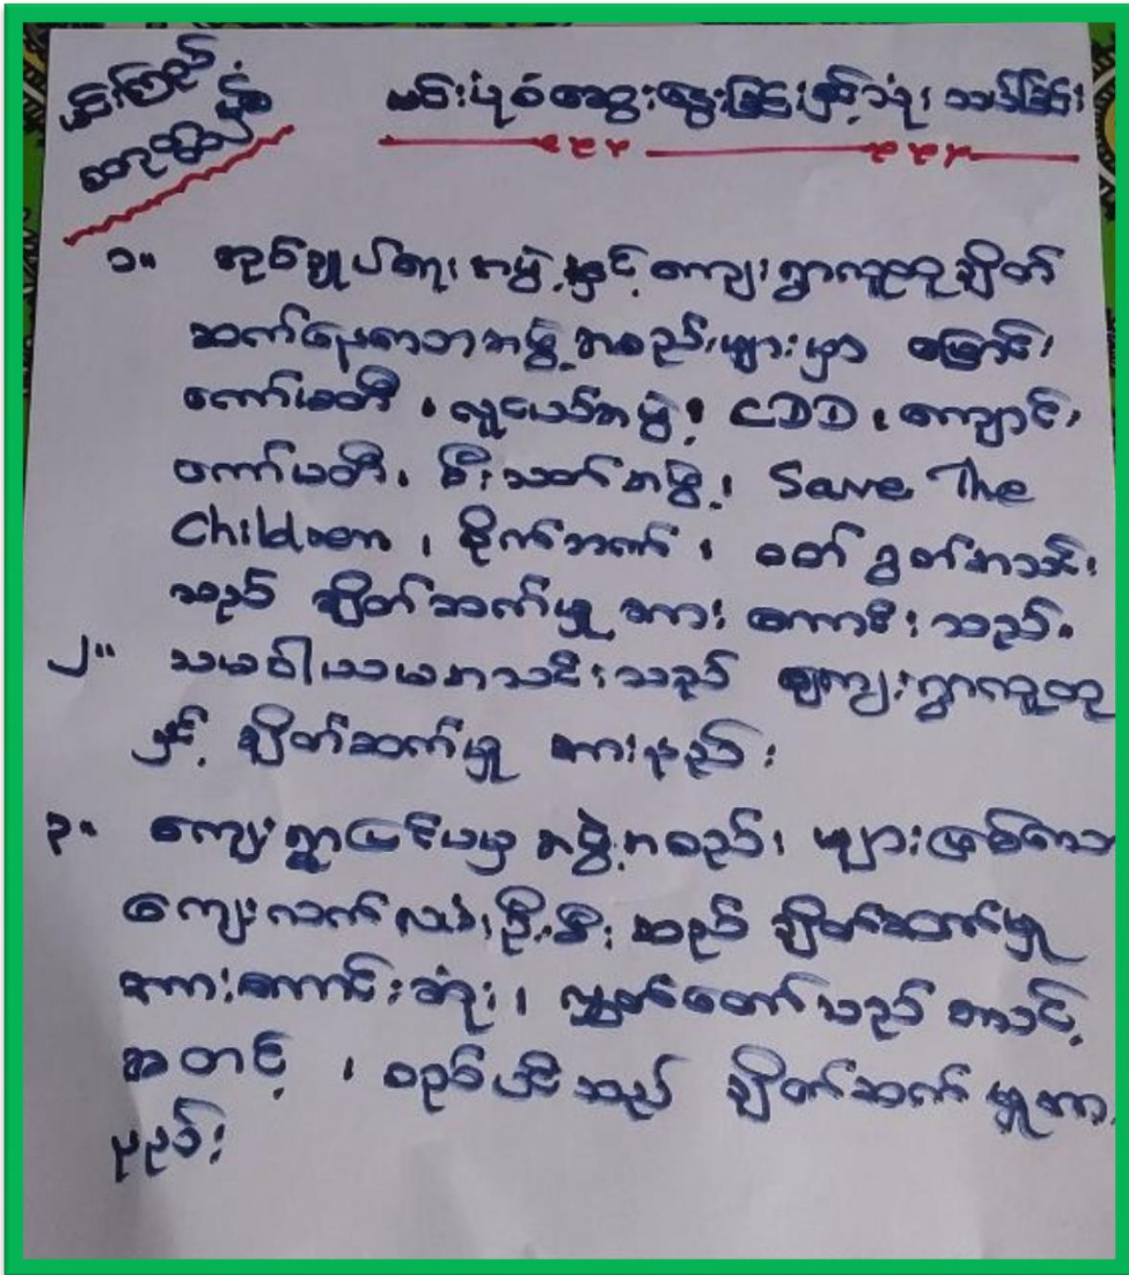 ဝင်းပုံစံဆွေးနွေးခြင်းနှင့်သုံးသပ်ခြင်း
၁။ အုပ်ချုပ်ရေးအဖွဲ့နှင့် ကျေးရွာလူထုချိတ်
ဆက်နေသောအဖွဲ့အစည်းများမှာ မြောင်း
ကော်မတီ၊ လူငယ်အဖွဲ့၊ CDD၊ ကျောင်း
ကော်မတီ၊ မီးသတ်အဖွဲ့၊ Save The
Children၊ စိုက်ဘက်၊ ဝတ်ရွတ်အသင်း
သည် ချိတ်ဆက်မှု အား ကောင်းသည်။
၂။ သမဝါယမအသင်းသည် ကျေးရွာလူထု
နှင့် ချိတ်ဆက်မှု အားနည်း
၃။ ကျေးရွာပြင်ပမှ အဖွဲ့အစည်းများဖြစ်သော
ကျေးလက်လမ်းဦးစီးသည် ချိတ်ဆက်မှု
အားကောင်းဆုံး၊ လွှတ်တော်သည် အသင့်
အတင့်၊ စည်ပင်သည် ချိတ်ဆက်မှုအား
နည်း